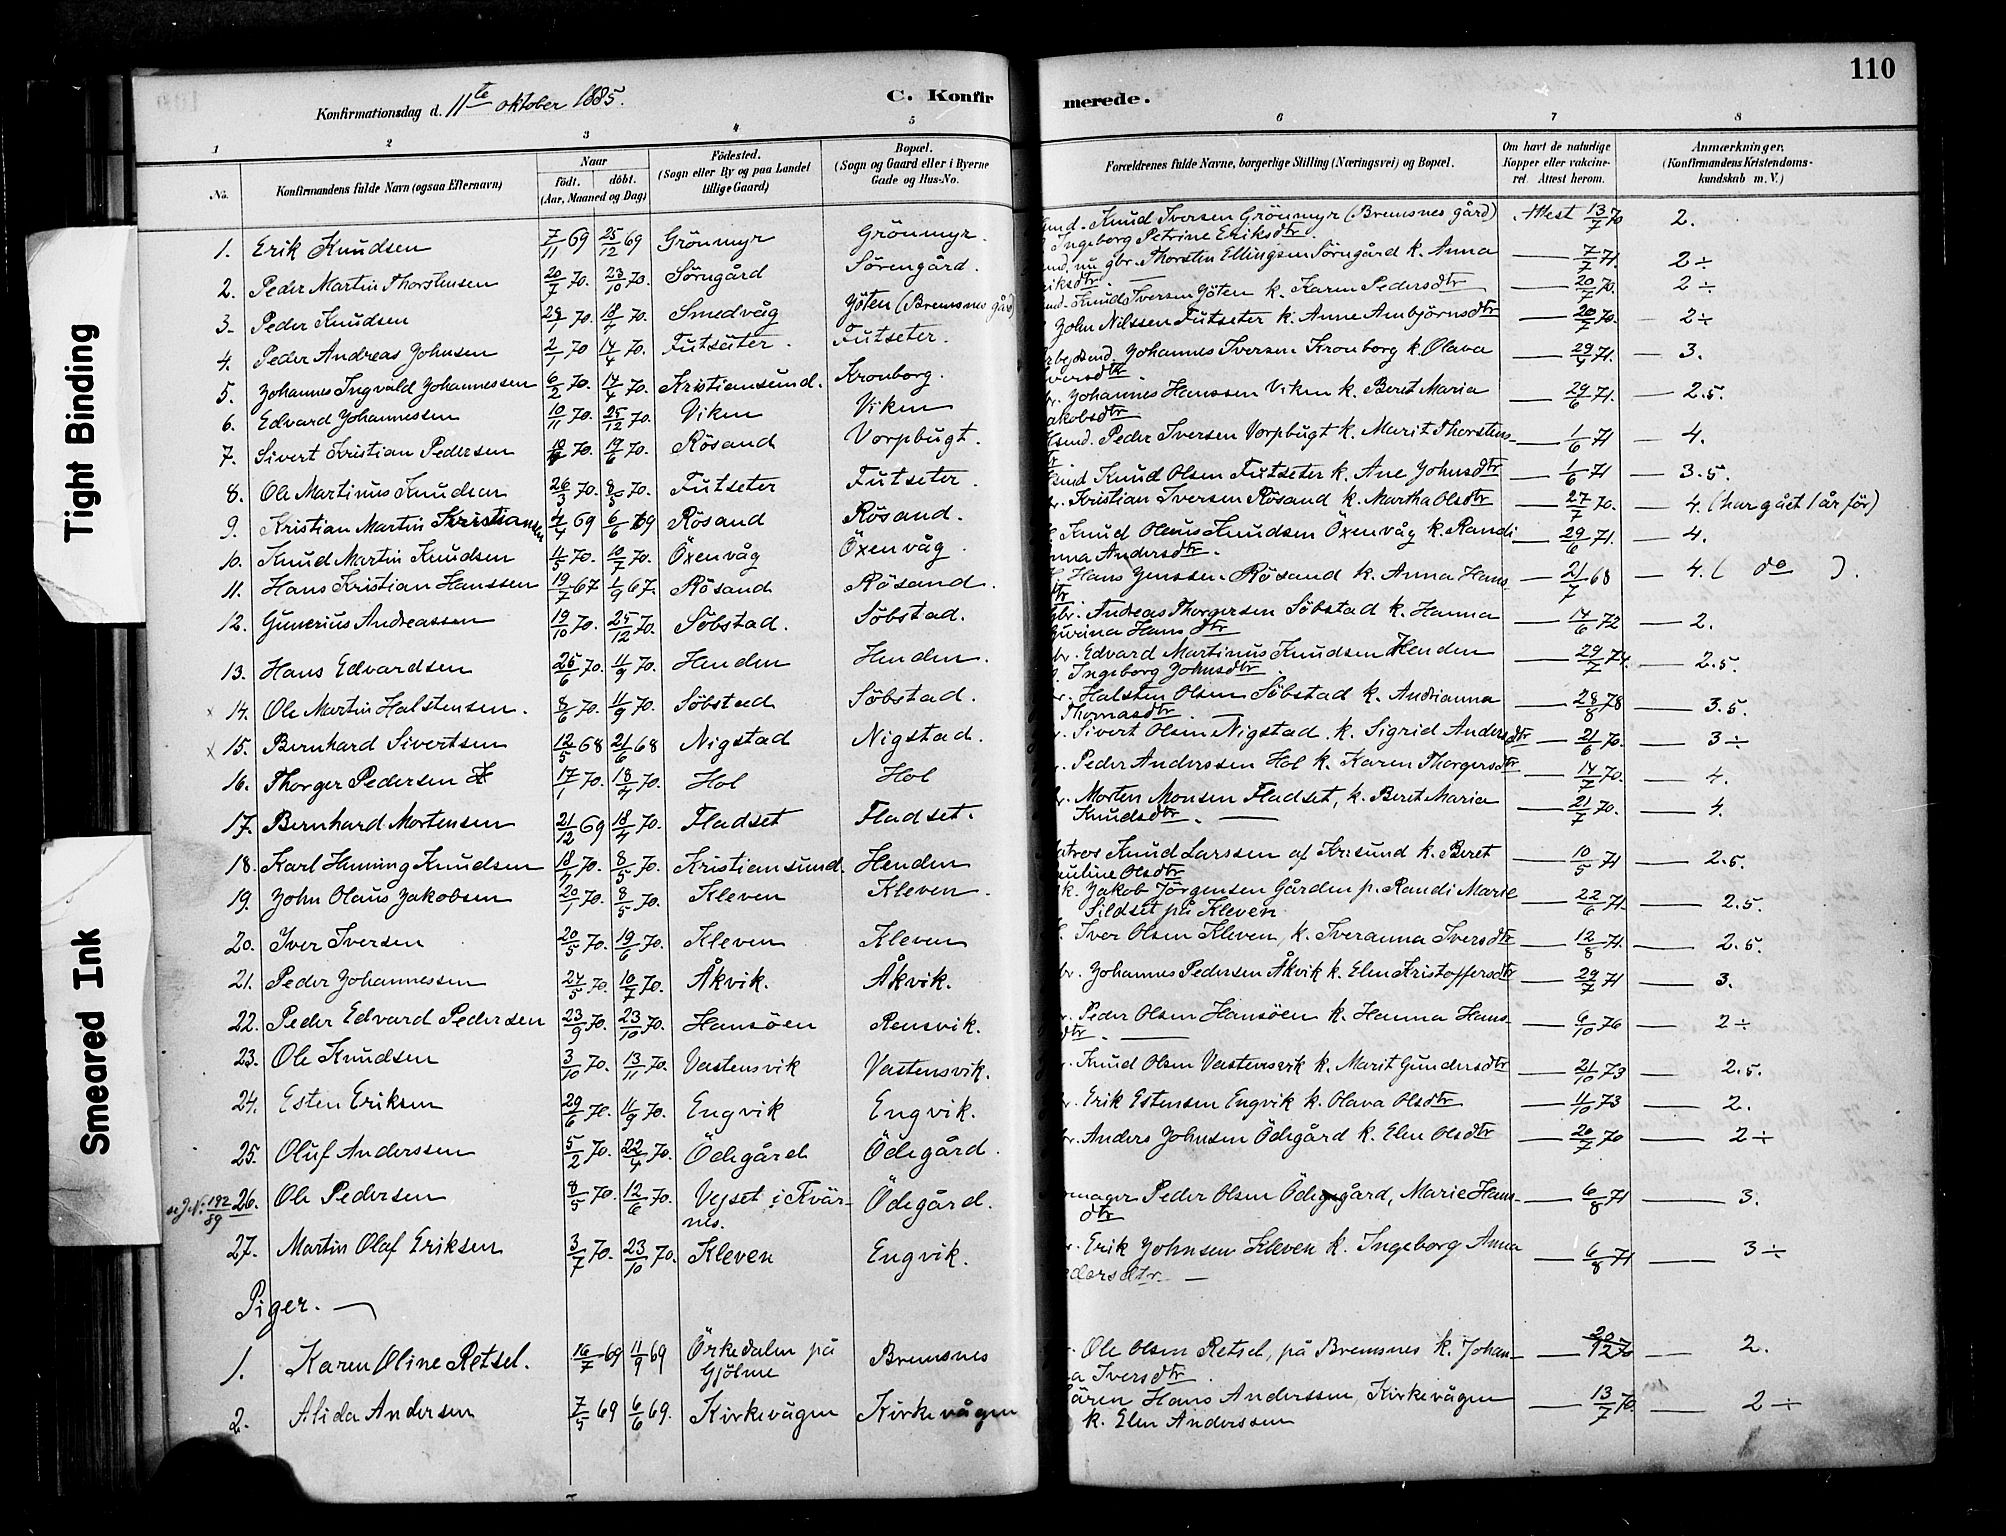 110
Konfirmationsdag d. 11te oktober 1885.
C. Konfirmerede.
1 2 3 4 5 6 7 8
No.
Konfirmandens fulde Navn (ogsaa Efternavn)
Naar
født. døbt.
(Aar, Maaned og Dag)
Fødested.
(Sogn eller By og paa Landet
tillige Gaard)
Bopæl.
(Sogn og Gaard eller i Byerne
Gade og Hus-No.
Forældrenes fulde Navne, borgerlige Stilling (Næringsvei) og Bopæl.
Om havt de naturlige
Kopper eller vakcine-
ret. Attest herom.
Anmærkninger.
(Konfirmandens Kristendoms-
kundskab m. V.)
1. Erik Knudsen 7/11 69 25/12 69 Grönmyr Grönmyr. Knud Iversen Grönmyr (Bremsnes gård) Attest 13/7 70 2.
Ingeborg Petrine Eriksdtr.
2. Peder Martin Thorstensen 20/7 70. 23/10 70. Sörngård Sörengård. nu gbr. Thorsten Ellingsen Sörngård k. Anna — 7/7 71. 2 ÷
3. Peder Knudsen 28/1 70. 18/4 70. Smedvåg Jöten (Bremsnes gård) Knud Iversen Jöten k. Karen Pedersdtr — 20/7 70. 2 ÷
4. Peder Andreas Johnsen 2/1 70 14/4 70. Futsäter. Futseter. John Nilssen Futseter k. Anne Ambjörnsdtr — 20/7 70. — 2 ÷
5. Johannes Ingvald Johannessen 6/2 70. 17/4 70. Kristiansund. Kronborg. Johannes Iversen Kronborg k. Olava — 29/4 71. — 3.
6. Edvard Johannessen 10/11 70. 25/12 70. Viken Viken Johannes Hanssen Viken k. Beret Maria — 29/6 71. — 2.5.
7. Sivert Kristian Pedersen 70. 19/6 70. Rösand Vorpbugt. Peder Iversen Vorpbugt k. Marit Thorstens- — 1/6 71 — 4.
8. Ole Martinus Knudsen 26/3 70. 8/5 70. Futseter Futseter. Knud Olsen Futseter k. Ane Johnsdtr — 1/6 71 — 3.5.
9. Kristian Martin Kristiansen 4/4 69 6/6 69 Rösand Rösand. Kristian Iversen Rösand k. Martha Olsdtr — 27/7 70. — 4. (har gået 1 år för)
10. Knud Martin Knudsen 11/5 70. 10/7 70. Öxenvåg Öxenvåg. Knud Olaus Knudsen Öxenvåg k. Randi — 29/6 71. — 4.
Andersdtr.
11. Hans Kristian Hanssen 19/7 67 1/9 67. Rösand Rösand. Hans Jenssen Rösand k. Anna Hans- — 21/7 68 — 4. ( do ).
12. Gunerius Andreassen 19/10 70. 25/12 70. Söbstad. Söbstad. Andreas Thorgersen Söbstad k. Hanna — 14/6 72 — 2.
Hansdtr
13. Hans Edvardsen 26/6 70. 11/9 70. Henden Henden. Edvard Martinus Knudsen Henden — 29/7 71. — 2.5
Ingeborg Johnsdtr
14. Ole Martin Halstensen. 8/6 70. 11/9 70. Söbstad Söbstad. Halsten Olsen Söbstad k. Andrianna — 28/8 78 — 3.5.
Thomasdtr. —
15. Bernhard Sivertsen 12/5 68 21/6 68 Nigstad Nigstad. Sivert Olsen Nigstad. k. Sigrid Andersdtr — 21/6 70. — 3 ÷
16. Thorger Pedersen 17/1 70. 18/4 70. Hol Hol Peder Anderssen Hol k. Karen Thorgersdtr — 14/7 70. — 4.
17. Bernhard Mortensen 21/12 69 18/4 70. Fladset Fladset. Morten Monsen Fladset, k. Beret Maria — 21/7 70. — 4.
Knudsdtr. —
18. Karl Henning Knudsen 18/1 70. 8/5 70. Kristiansund. Henden Knud Larssen af Krsund k. Beret — 10/5 71 — 2.5.
Olsdtr
19. John Olaus Jakobsen 20/1 70. 8/5 70. Kleven Kleven. Jakob Jörgensen Gården p. Randi Marie — 22/6 71. — 2.5.
Sildset på Kleven
20. Iver Iversen 20/5 70. 19/6 70. Kleven Kleven Iver Olsen Kleven, k. Iveranna Iversdtr — 12/8 71. — 2.5.
21. Peder Johannessen 24/5 70. 10/7 70. Åkvik. Åkvik. Johannes Pedersen Åkvik k. Elen Kristoffersdtr — 29/7 71 — 3.
22. Peder Edvard Pedersen 23/9 70. 23/10 70. Hansöen Rensvik. Peder Olsen Hansöen k. Hanna Hans- — 6/10 76 — 2 ÷
dtr. —
23. Ole Knudsen 3/10 70. 13/11 70. Vastensvik Vastensvik. Knud Olsen Vastensvik k. Marit Gundersdtr — 21/10 73 — 2.5.
24. Esten Eriksen 29/6 70. 11/9 70. Engvik Engvik. Erik Estensen Engvik k. Olava Olsdtr — 11/10 73 — 2.
25. Oluf Anderssen 5/2 70. 22/4 70. Ödegård Ödegård. Anders Johnsen Ödegård k. Elen Olsdtr — 20/7 70 — 2 ÷
26. Ole Pedersen 8/5 70. 12/6 70. Vejset i Kvär- Ödegård. Peder Olsen Ödegård, Marie Hans- — 6/8 71 — 3.
nes. dtr
27. Martin Olaf Eriksen 3/7 70. 23/10 70. Kleven Engvik. Erik Johnsen Kleven k. Ingeborg Anna — 6/8 71 — 3 ÷
Piger. —
1. Karen Oline Retsel. 16/7 69 11/9 69 Örkedalen på Bremsnes Ole Olsen Retsel, på Bremsnes k. Johan- — 20/12 70 — 2.
Gjölme Iversdtr.
2. Alida Andersen 7/5 69 6/6 69. Kirkevågen Kirkevågen Hans Anderssen, Kirkevågen — 13/7 70. — 2 ÷
k. Elen Anderssen
Tight Binding
Smeared Ink